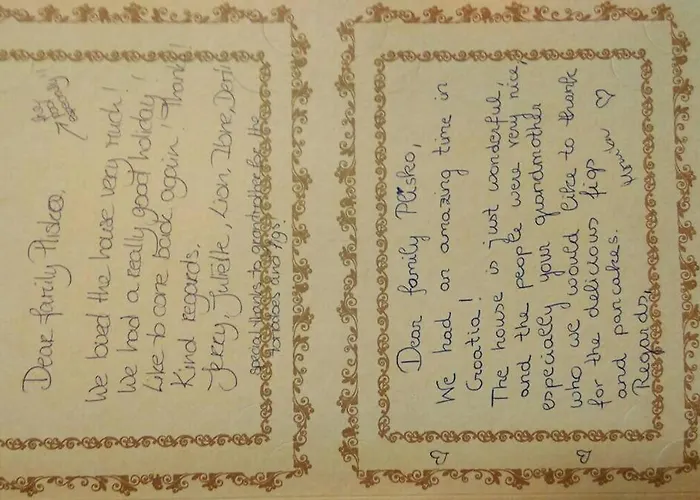 Dear family Plisko,
We loved the house very much!
We had a really good holiday!
Like to come back again! Thanks!
Kind regards,
Jerry, Lion,
special thanks to grandmother for the
tomatoes and figs.
Dear family Plisko,
We had an amazing time in
Croatia!
The house is just wonderful,
and the people were very nice,
especially your grandmother
who we would like to thank
for the delicious figs
and pancakes.
Regards,